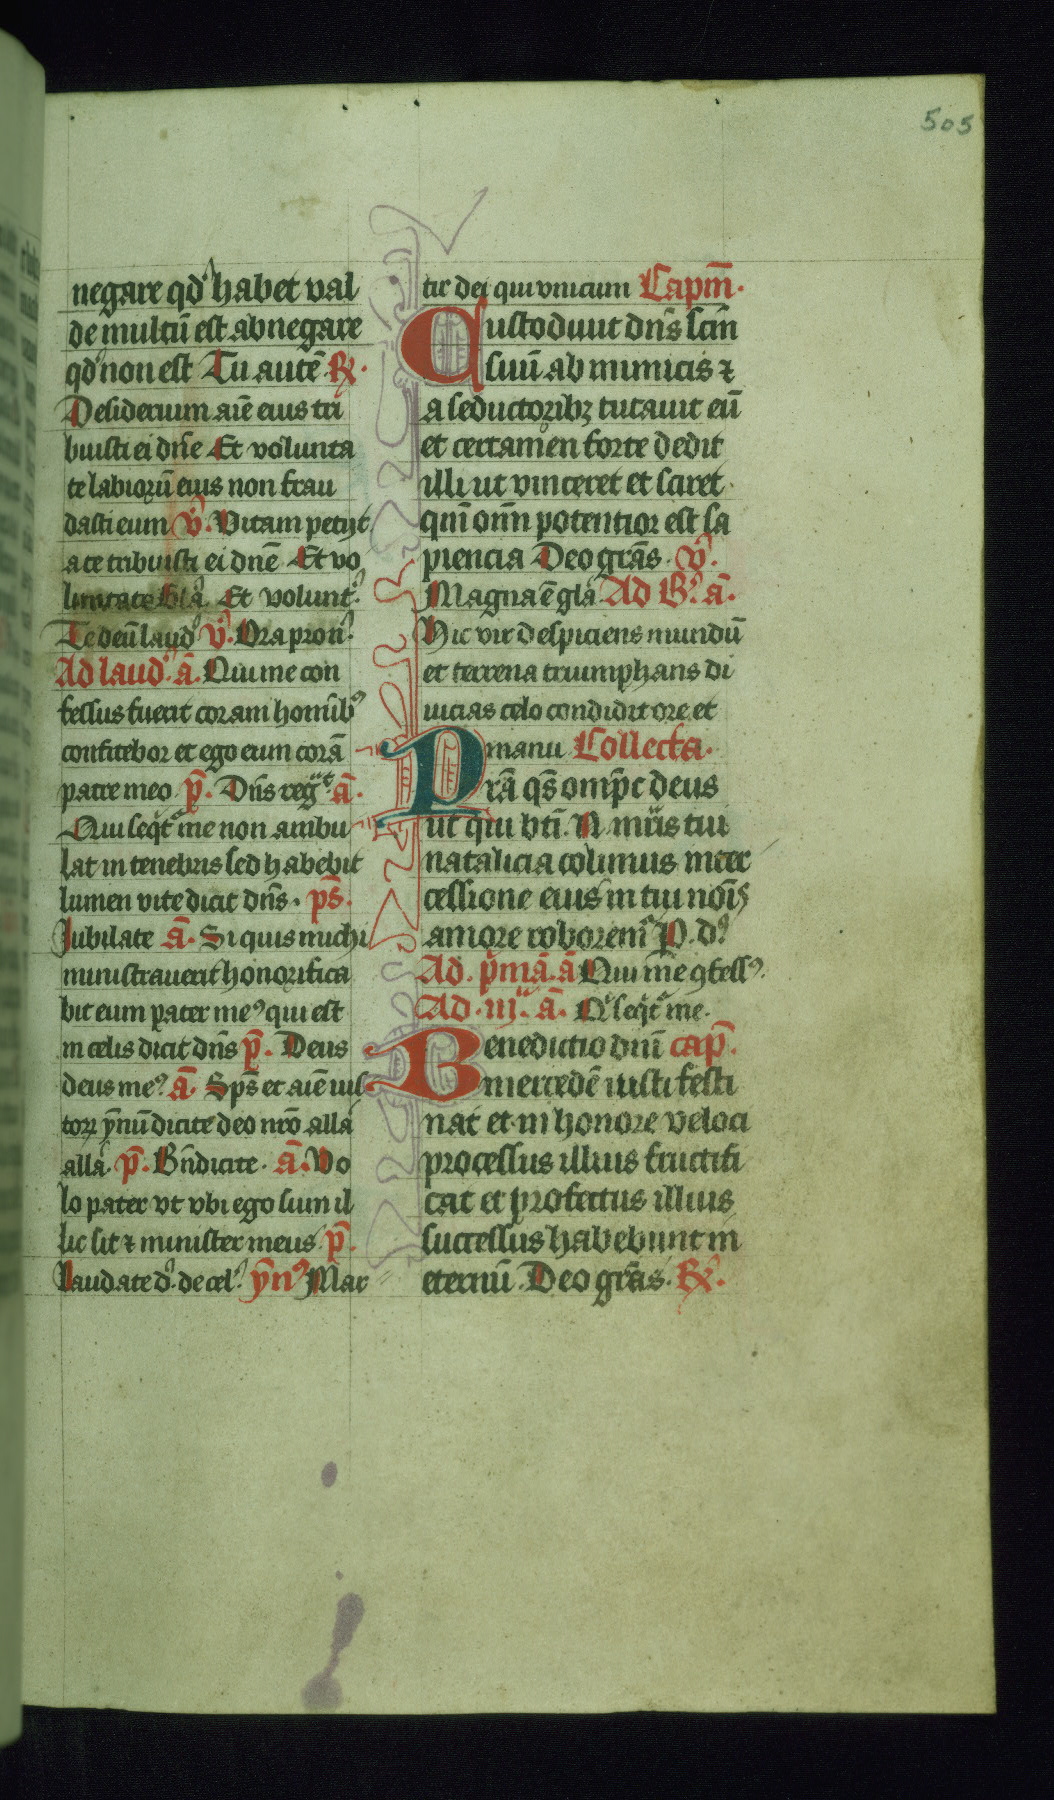 505
negare qd' habet val
de multū est abnegare
qd' non est Tu autē R.
Desiderium aīe eius tri
buisti ei dn̄e Et volunta
te labiorū eius non frau
dasti eum V. Vitam petijt
a te tribuisti ei dn̄e Et vo
Et volunt'
Te deū laud' V. Ora pro n'
Ad laud' ā. Qui me con
fessus fuerit coram homīb'
confitebor et ego eum corā
patre meo p̄. Dn̄s reg't ā.
Qui seq't me non ambu
lat in tenebris sed habebit
lumen vite dicit dn̄s. ps̄.
Iubilate ā. Si quis michi
ministrauerit honorifica
bit eum pater me9 qui est
in celis dicit dn̄s p̄. Deus
deus me9 ā. Sps̄ et aīe ius
torꝝ ȳnū dicite deo nr̄o alla
alla. p̄. Bn̄dicite. ā. Vo
lo pater vt vbi ego sum il
lic sit ⁊ minister meus p̄.
Laudate d'. de cel'. ȳn9 Mar
tir dei qui vnicum Capm̄.
Custodiuit dn̄s scm̄
suū ab inimicis ⁊
a seductoribꝫ tutauit eū
et certamen forte dedit
illi ut vinceret et sciret
qm̄ om̄ potentior est sa
piencia Deo grās. V.
Magna ē glā Ad B'. ā.
Hic vir despiciens mundū
et terrena triumphans di
uicias celo condidit ore et
manu Collecta.
Prā qs̄ omp̄c deus
ut qui bt̄i. N mr̄is tui
natalicia colimus inter
cessione eius in tui noīs
amore roborem' P. d'.
Ad. p̄mā. ā Qui me ꝯfess9.
Ad. iij. ā. Q' seq't me.
Benedictio dn̄i cap̄.
in mercedē iusti festi
nat et in honore veloci
processus illius fructifi
cat et profectus illius
successus habebunt in
eternū. Deo grās. R.